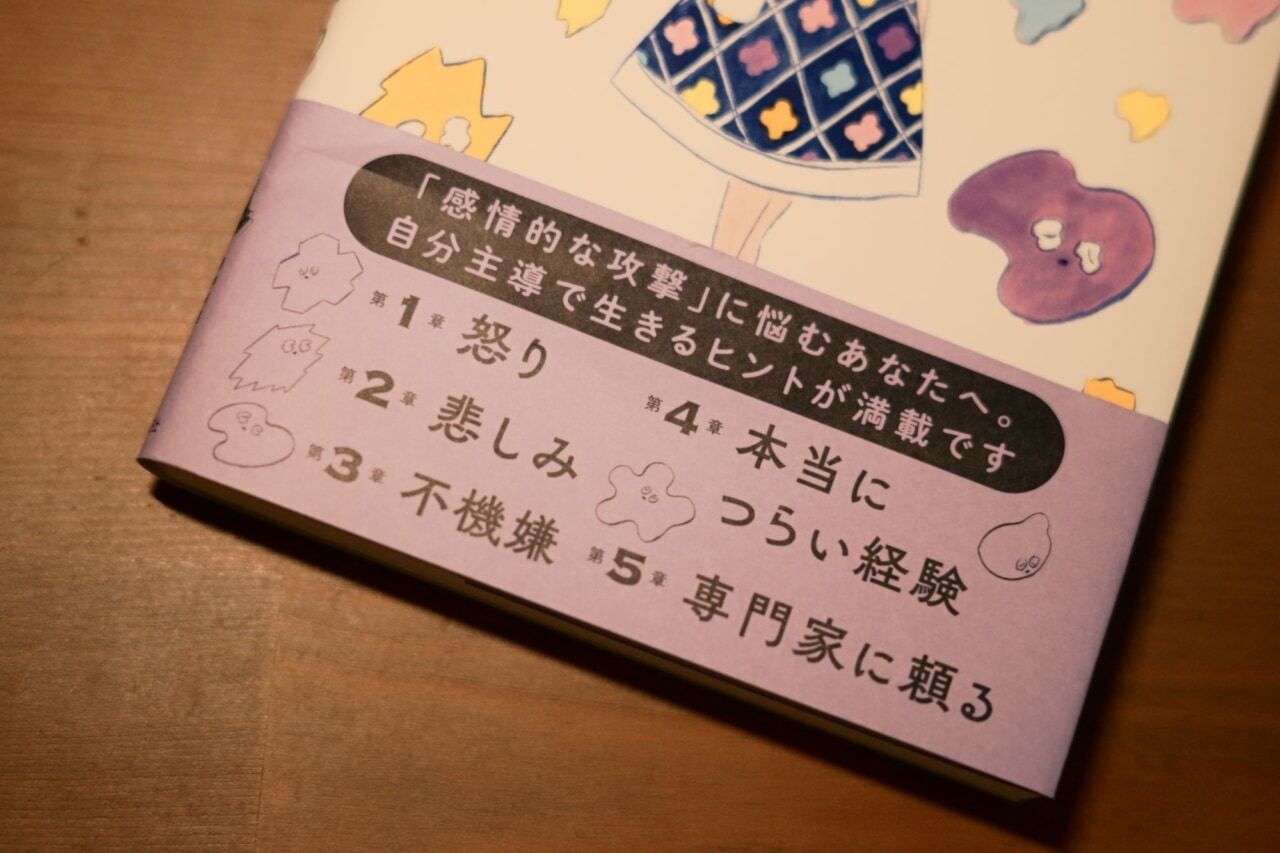 「感情的な攻撃」に悩むあなたへ。
自分主導で生きるヒントが満載です
第1章 怒り
第2章 悲しみ
第3章 不機嫌
第4章 本当に
つらい経験
第5章 専門家に頼る